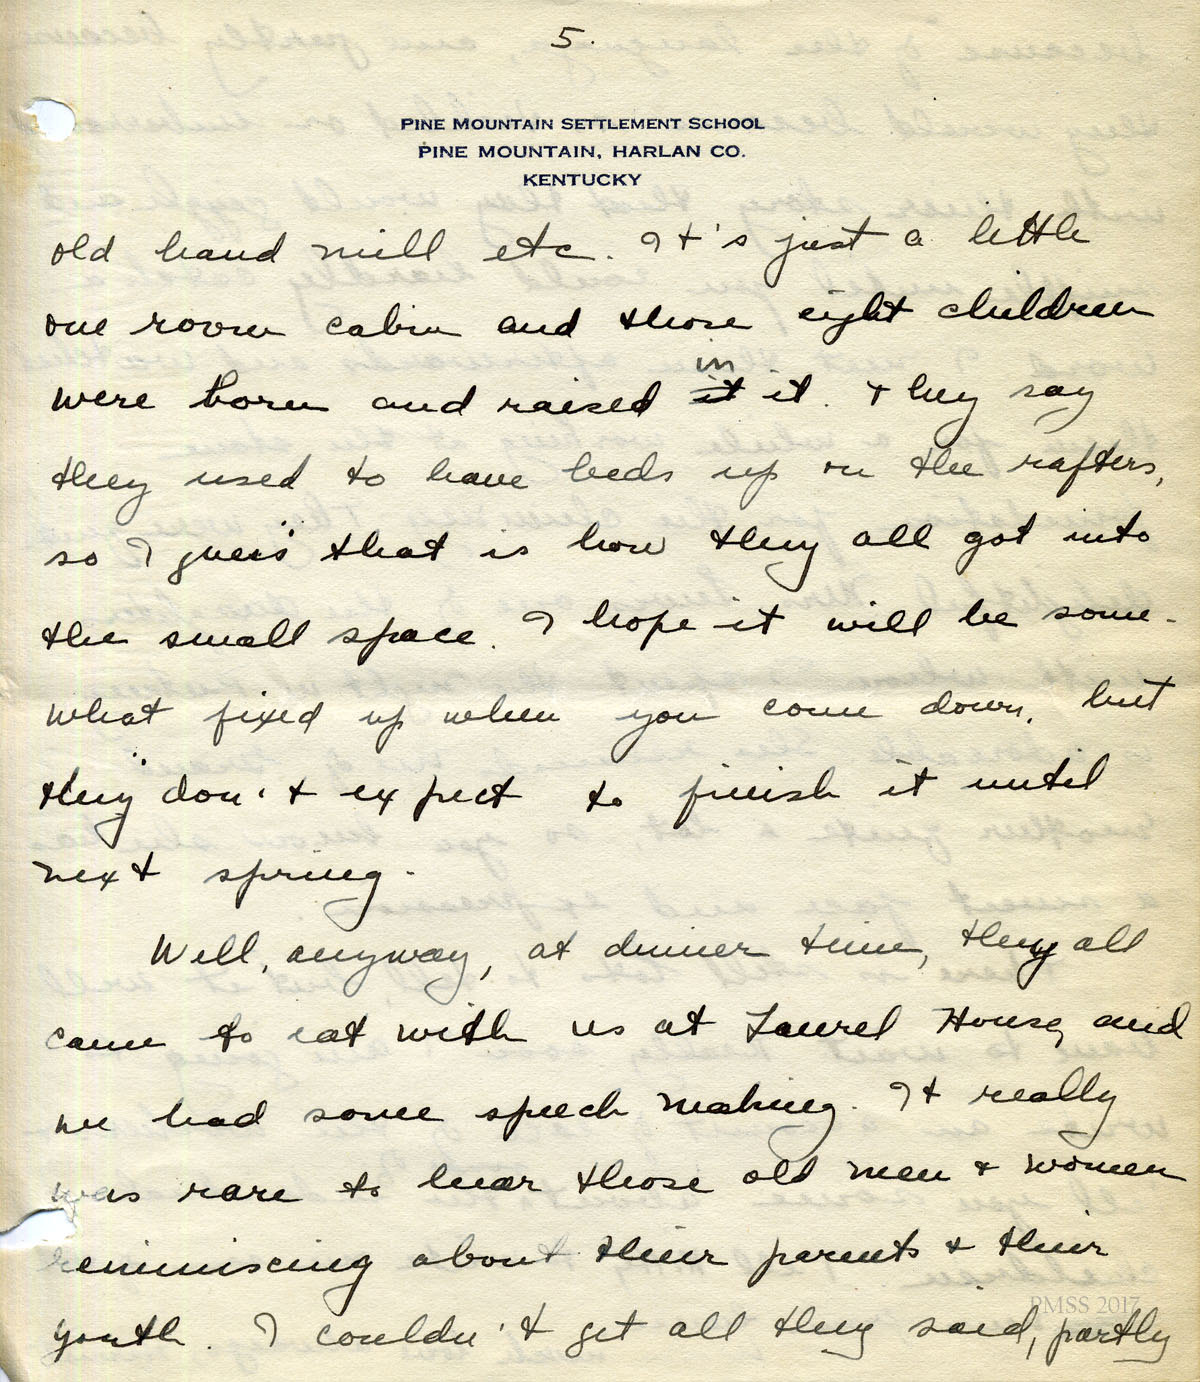 5.
PINE MOUNTAIN SETTLEMENT SCHOOL
PINE MOUNTAIN, HARLAN CO.
KENTUCKY
old hand mill etc. It's just a little
one room cabin and those eight children
in
were born and raised it it. They say
they used to have beds up on the rafters,
so I guess that is how they all got into
the small space. I hope it will be some-
what fixed up when you come down, but
they don't expect to finish it until
next spring.
Well, anyway, at dinner time, they all
came to eat with us at Laurel House, and
we had some speech making. It really
was rare to hear those old men & women
reminiscing about their parents & their
youth. I couldn't get all they said, partly
PMSS 2017